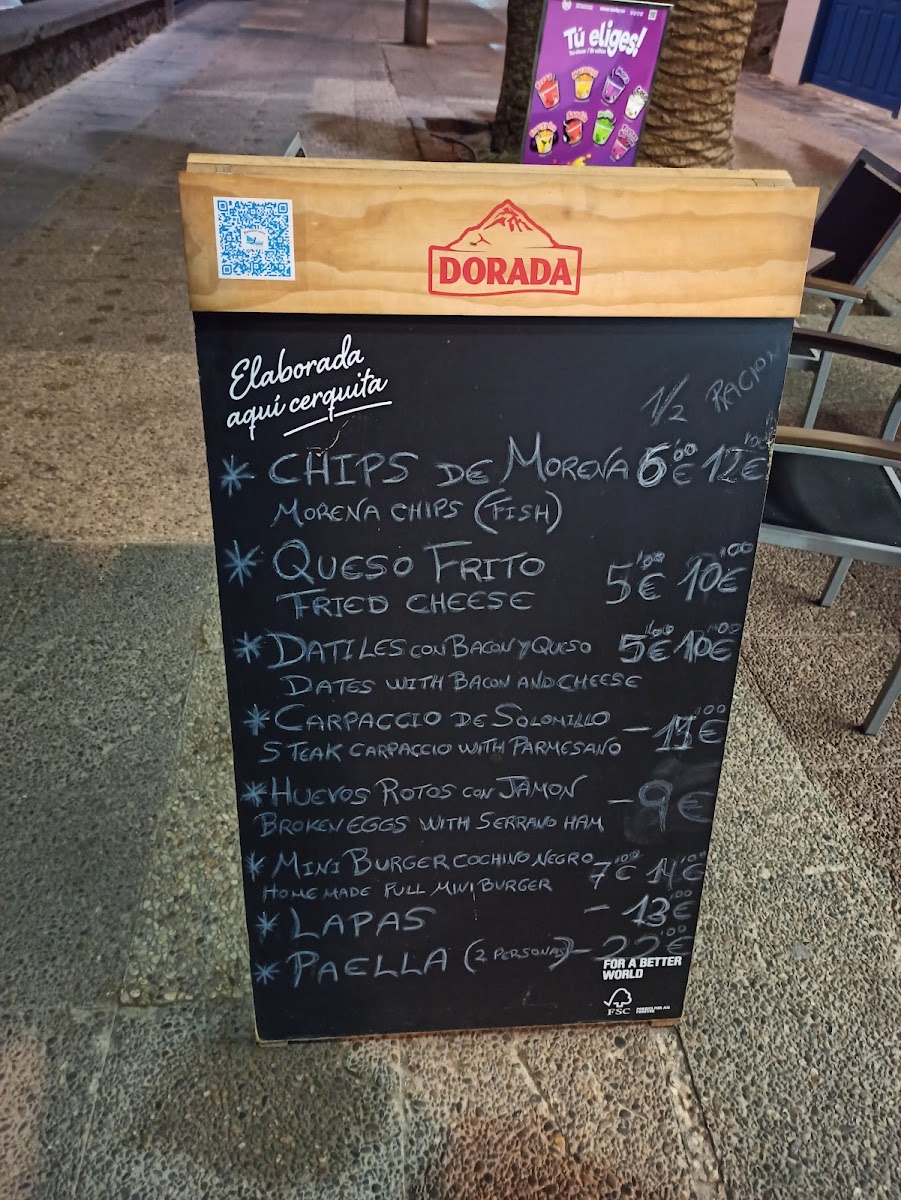 Tú eliges!
DORADA
Elaborada
aquí cerquita
1/2 RACION
* CHIPS DE MORENA 6'00€ 12'00€
MORENA CHIPS (FISH)
* QUESO FRITO 5'00€ 10'00€
FRIED CHEESE
* DATILES CON BACON Y QUESO 5'00€ 10'00€
DATES WITH BACON AND CHEESE
* CARPACCIO DE SOLOMILLO
STEAK CARPACCIO WITH PARMESANO
* HUEVOS ROTOS CON JAMON - 9€
BROKEN EGGS WITH SERRANO HAM
* MINI BURGER COCHINO NEGRO 7'00€ 14'00€
HOME MADE PULL MINI BURGER
* LAPAS - 13'00€
* PAELLA (2 PERSONAS) - 22'00€
FOR A BETTER
WORLD
FSC FORESTS FOR ALL
FOREVER